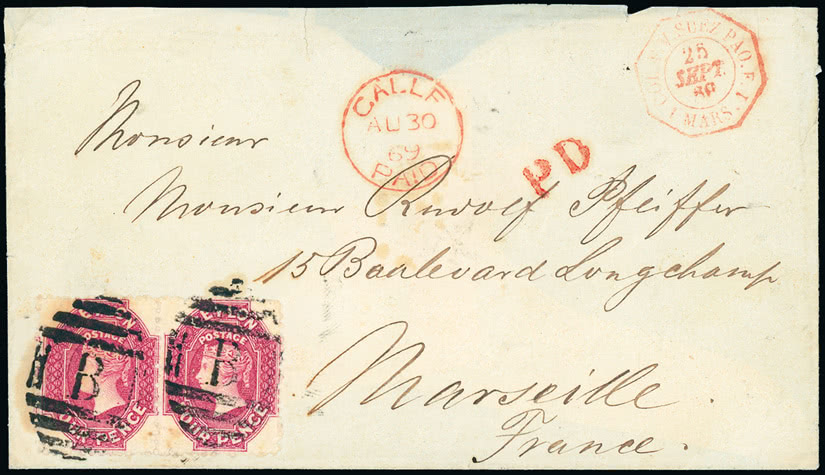 COL. V. SUEZ PAQ. F. 1
25
SEPT.
69
1 MARS. 1
GALLE
AU 30
69
PAID
PD
Monsieur
Monsieur Rudolf Pfeiffer
15 Baalevard Longchamp
Marseille
France.
CEYLON
POSTAGE
FOUR PENCE
B
CEYLON
POSTAGE
FOUR PENCE
B